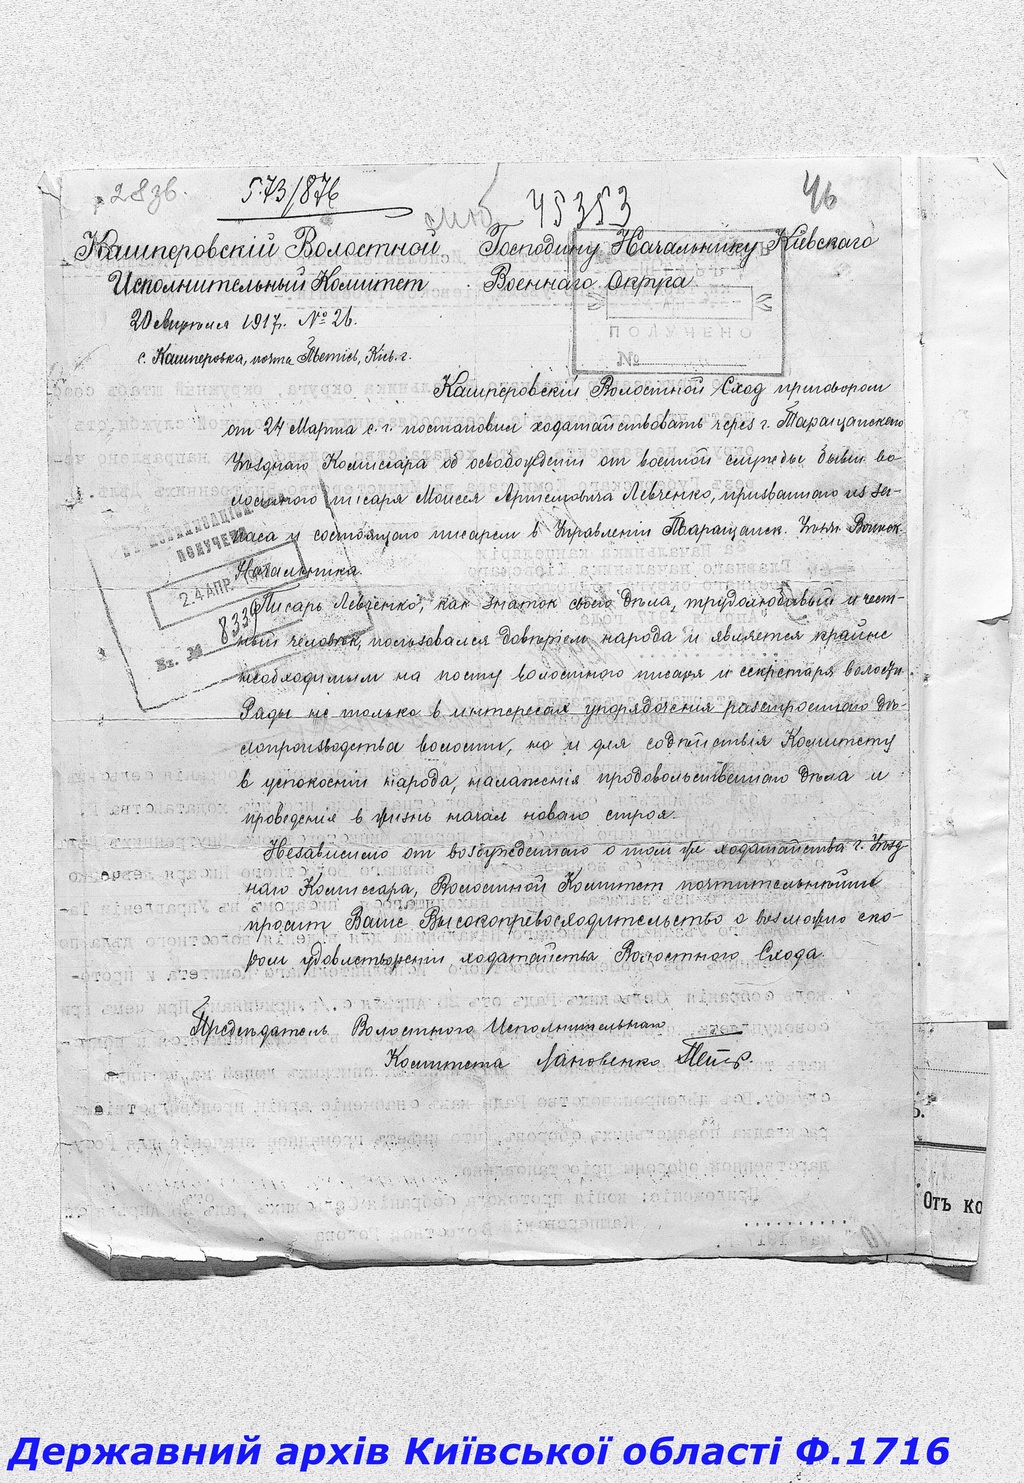 28 зв.
573/876
45353
46
Кашперовскій Волостной
Исполнительный Комитет
20 Апреля 1917 г. № 26.
с. Кашперовка, почта Тетіев, Кіев. г.
Господину Начальнику Кіевскаго
Военнаго Округа
ПОЛУЧЕНО
№
Кашперовскій Волостной Сход приговором
от 24 Марта с. г. постановил ходатайствовать через г. Таращанскаго
Уѣзднаго Комиссара об освобожденіи от военной службы бывш. во-
лостного писаря Моисея Артемовича Левченко, призваннаго из за-
паса и состоящаго писарем в Управленіи Таращанск. Уѣзд. Воинск.
Начальника.
Писарь Левченко, как знаток своего дѣла, трудолюбивый и чест-
ный человѣк, пользовался довѣріем народа и является крайне
необходимым на посту волостного писаря и секретаря волостн.
Рады не только в интересах упорядоченія разстроеннаго дѣ-
лопроизводства волости, но и для содѣйствія Комитету
в успокоеніи народа, налаженія продовольственнаго дѣла и
проведенія в жизнь начал новаго строя.
Независимо от возбужденнаго о том же ходатайства г. Уѣзд-
наго Комиссара, Волостной Комитет почтительнѣйше
просит Ваше Высокопревосходительство о возможно ско-
ром удовлетвореніи ходатайства Волостного Схода.
Предсѣдатель Волостного Исполнительнаго
Комитета Лановенко Петр.
ПОЛУЧЕНО
24 АПР.
Вх. № 8339
Отъ ко
Державний архів Київської області Ф.1716